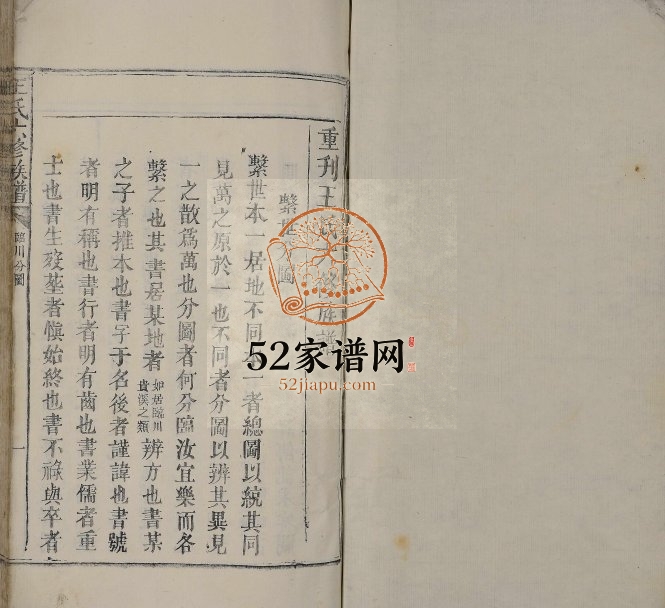 重刊王氏族譜
繫世圖
繫世本一居地不同本一者總圖以統其同
見萬之原於一也不同者分圖以辨其異見
一之散爲萬也分圖者何分臨汝宜樂而各
繫之也其書居某地者如居臨川貴溪之類辨方也書某
之子者推本也書字于名後者謹諱也書號
者明有稱也書行者明有齒也書業儒者重
士也書生歿塟者愼始終也書不祿與卒者
王氏六修族譜
臨川分圖
一
52家谱网
52jiapu.com